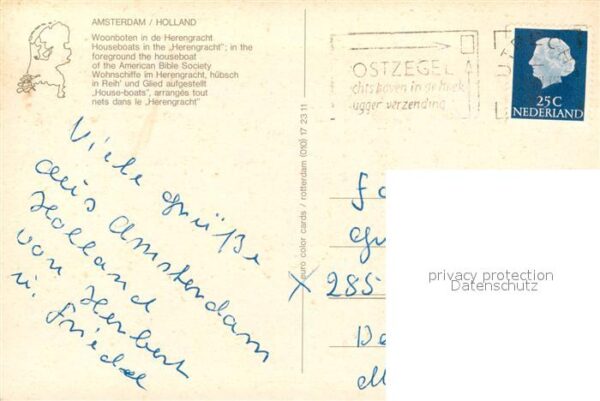 AMSTERDAM / HOLLAND
Woonboten in de Herengracht
Houseboats in the „Herengracht"; in the
foreground the houseboat
of the American Bible Society
Wohnschiffe im Herengracht, hübsch
in Reih' und Glied aufgestellt
„House-boats", arrangés tout
nets dans le „Herengracht"
Viele Grüße
aus Amsterdam
Holland
von Herbert
u. Friedel
euro color cards / rotterdam (010) 17 23 11
OSTZEGEL
chts boven in de hoek
ugger verzending
25C
NEDERLAND
X 285
privacy protection
Datenschutz